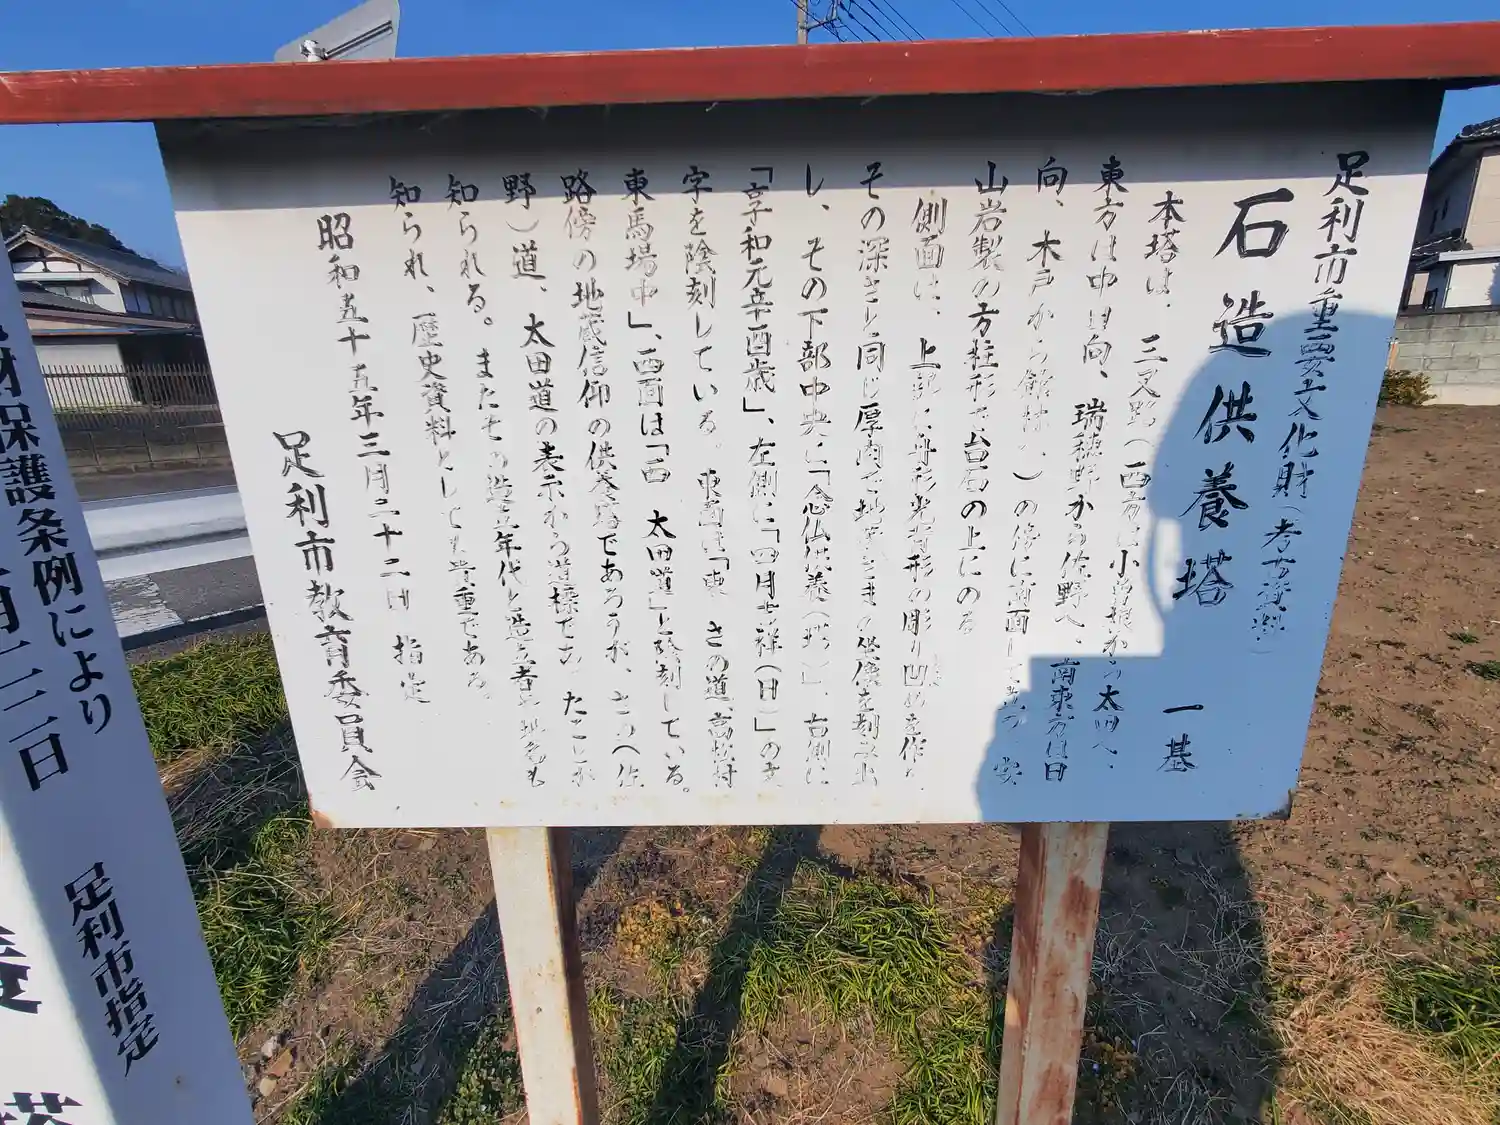 足利市重要文化財(考古資料)
石造供養塔 一基
本塔は、三叉路(西方は小曽根から太田へ、
東方は中日向、瑞穂野から佐野へ、南東方は日
向、木戸から館林へ)の傍に南面して立つ 安
山岩製の方柱形で台石の上にのる
側面は、上部に舟形光背形の彫り凹めを作り
その深さと同じ厚肉で地蔵さまの坐像を刻み出
し、その下部中央に「念仏供養( )」、右側に
「享和元辛酉歳」、左側に「四月吉祥(日)」の文
字を陰刻している。東面は「東 さの道、高松村
東馬場中」、西面は「西 太田道」と陰刻している。
路傍の地蔵信仰の供養塔であろうが、さの(佐
野)道、太田道の表示から道標であったことが
知られる。またその造立年代と造立者や地名も
知られ、歴史資料としても貴重である。
昭和五十五年三月二十二日 指定
足利市教育委員会
財保護条例により
月二二日
足利市指定
養 塔